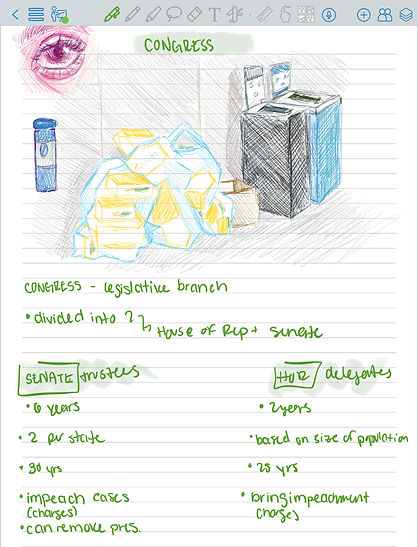 CONGRESS
CONGRESS - legislative branch
• divided into 2
House of Rep + Senate
SENATE trustees
• 6 years
• 2 per state
• 30 yrs
• impeach cases
(charges)
• can remove pres.
HOR delegates
• 2 years
• based on size of population
• 25 yrs
• bring impeachment
charges